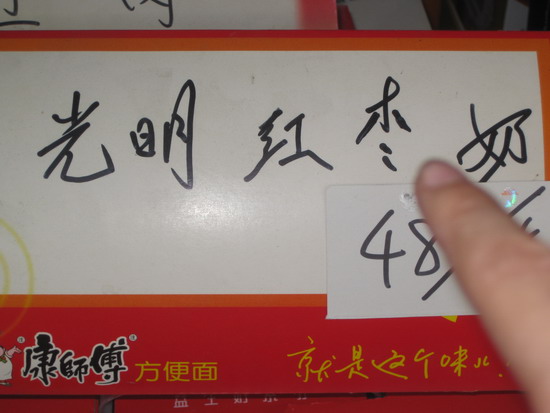 光明 红枣奶
48/
康師傅 方便面
就是这个味儿